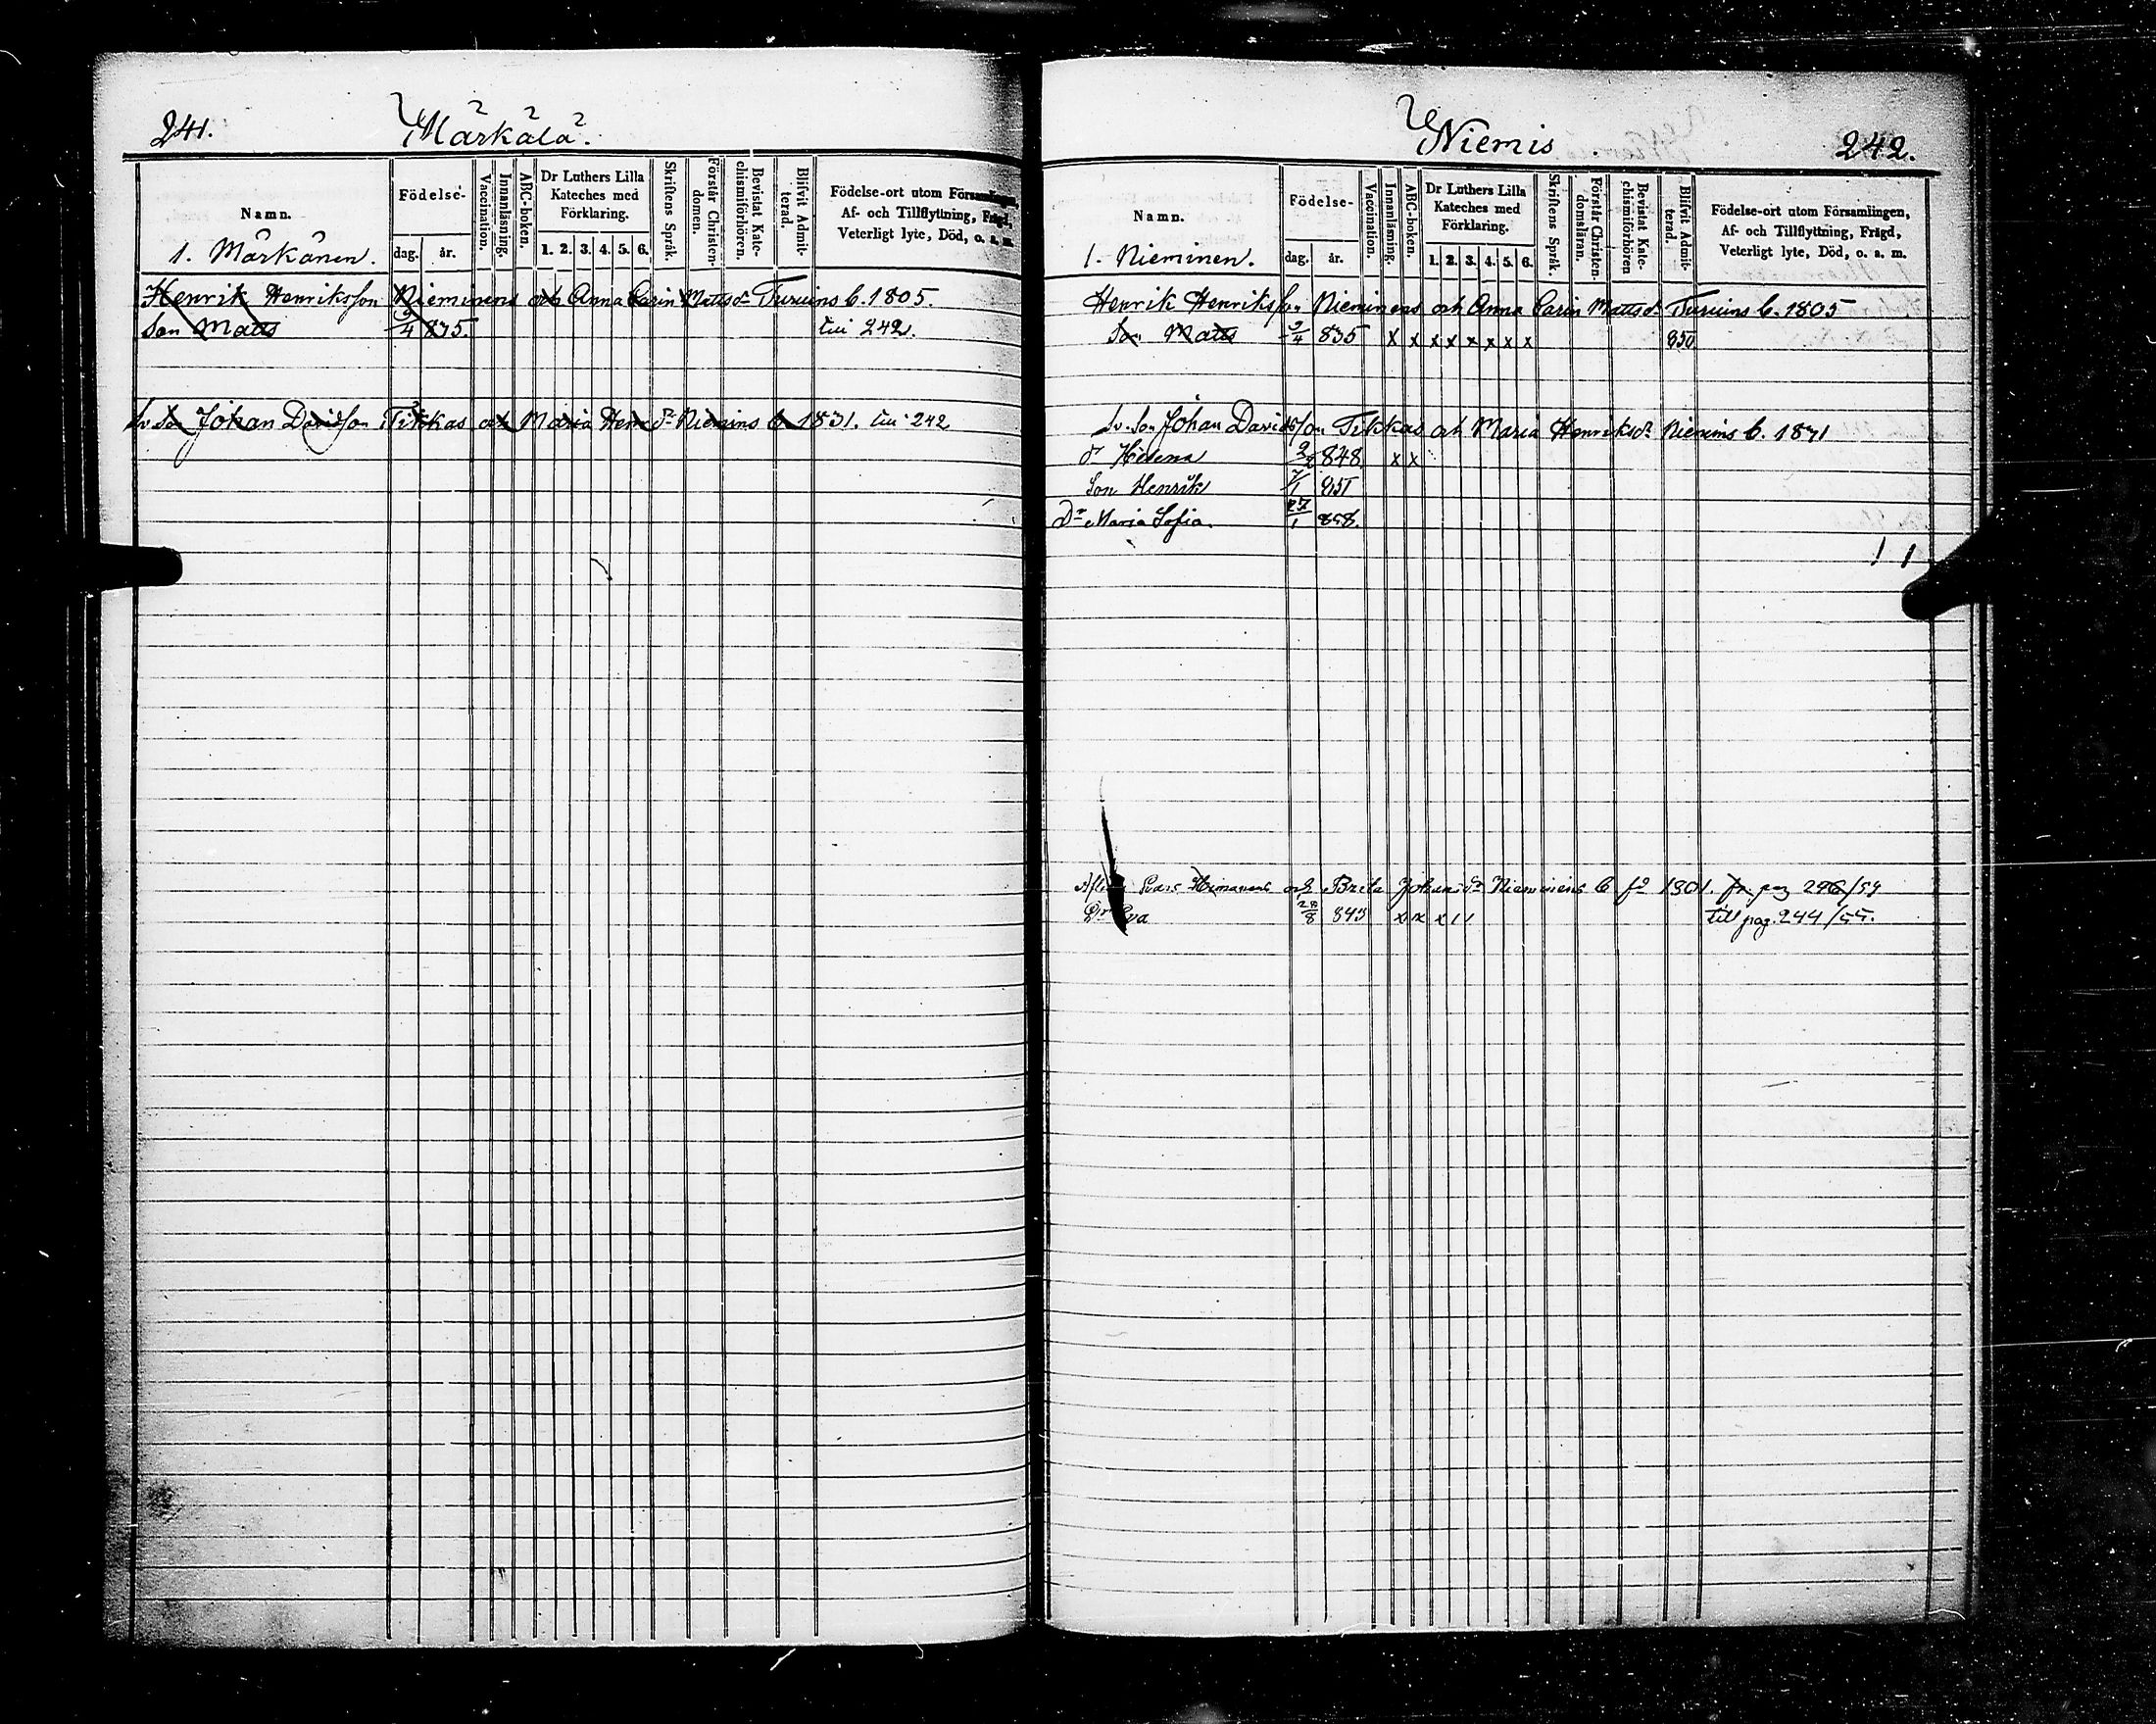 241.
Märkälä.
Namn.
Födelse-
dag. år.
Vaccination.
Innanläsning.
ABC-boken.
Dr Luthers Lilla
Kateches med
Förklaring.
1. 2. 3. 4. 5. 6.
Skriftens Språk.
Förstår Christen-
domen.
Bevistat Kate-
chismiförhören.
Blifvit Admit-
terad.
Födelse-ort utom Församlingen,
Af- och Tillflyttning, Frägd,
Veterligt lyte, Död, o. a. m.
1. Märkänen.
Henrik Henriksson Nieminens och Anna Carin Mattsdr Turuins b. 1805.
Son Matts 9/4 835. 242.
Johan Davidsson Tikkas och Maria Henr dr Niemins b. 1831. 242
Niemis
242.
Namn.
Födelse-
dag. år.
Vaccination.
Innanläsning.
ABC-boken.
Dr Luthers Lilla
Kateches med
Förklaring.
1. 2. 3. 4. 5. 6.
Skriftens Språk.
Förstår Christen-
domsläran.
Bevistat Kate-
chismiförhören
Blifvit Admit-
terad.
Födelse-ort utom Församlingen,
Af- och Tillflyttning, Frägd,
Veterligt lyte, Död, o. a. m.
1. Nieminen.
Henrik Henriksson Nieminens och Anna Carin Mattsdr Turuins b. 1805
Son Matts 9/4 835 x x x x x x x x 850
Sv. Son Johan Davidsson Tikkas och Maria Henriksdr Niemins b. 1831
dr Helena 848 x x
Son Henrik 7/1 851
Dr Maria Sofia. 27/1 858.
1 1
och Brita Johansdr Nieminens b fd 1801. fr. pag 246/54
Dr Eva 20/8 843 x x x 1 1 till pag. 244/55.